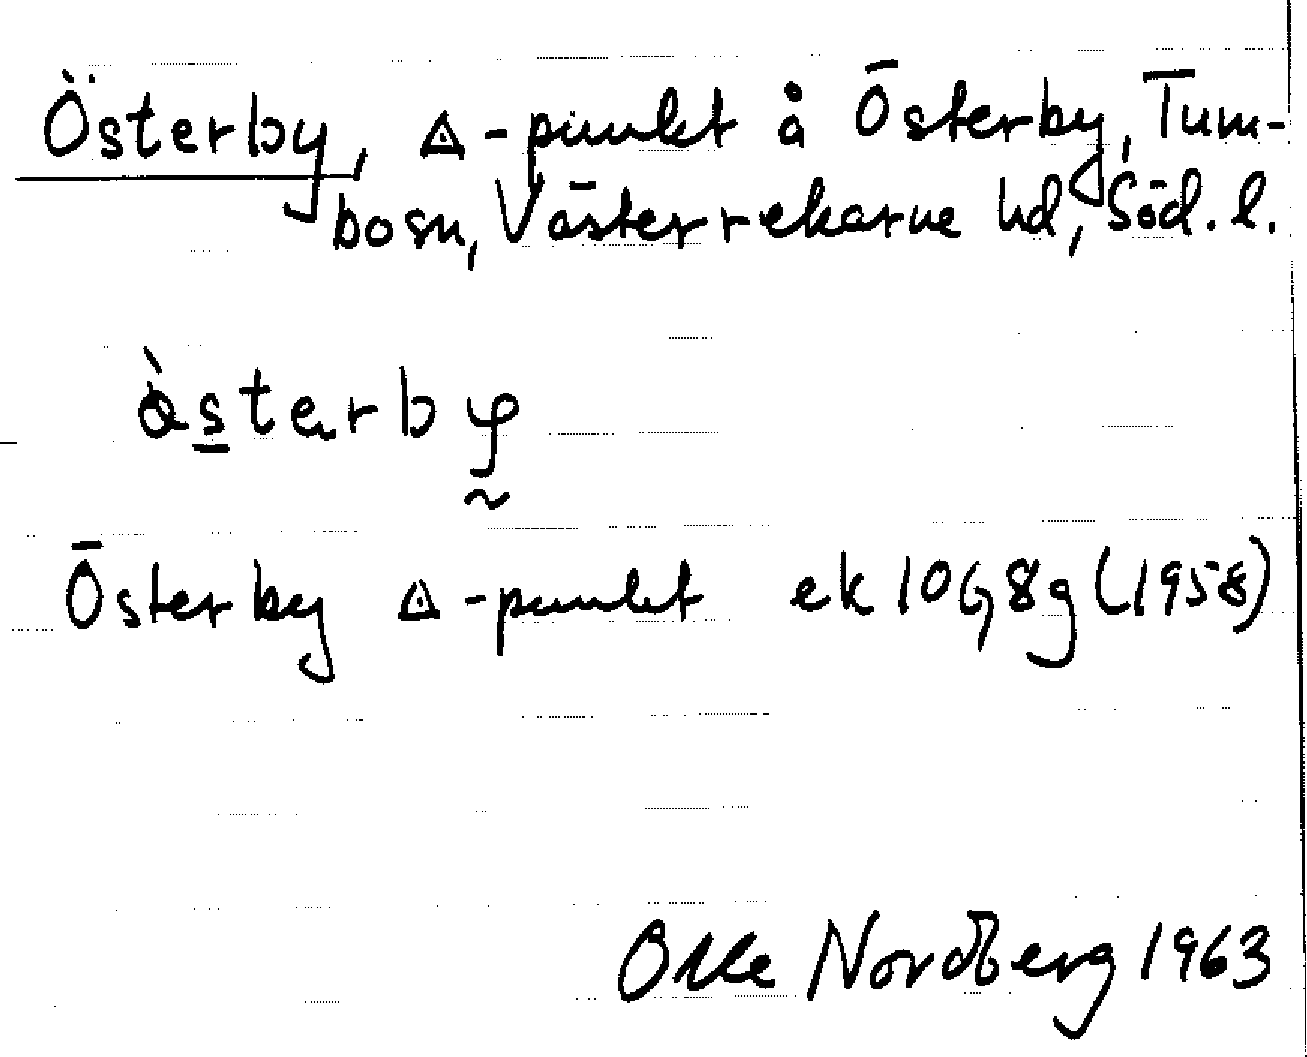 Österby, ◬-punkt å Österby, Tum-
bo sn, Västerrekarne hd, Söd. l.
Österby ◬-punkt ek 10G, 8g (1958)
Olle Nordberg 1963